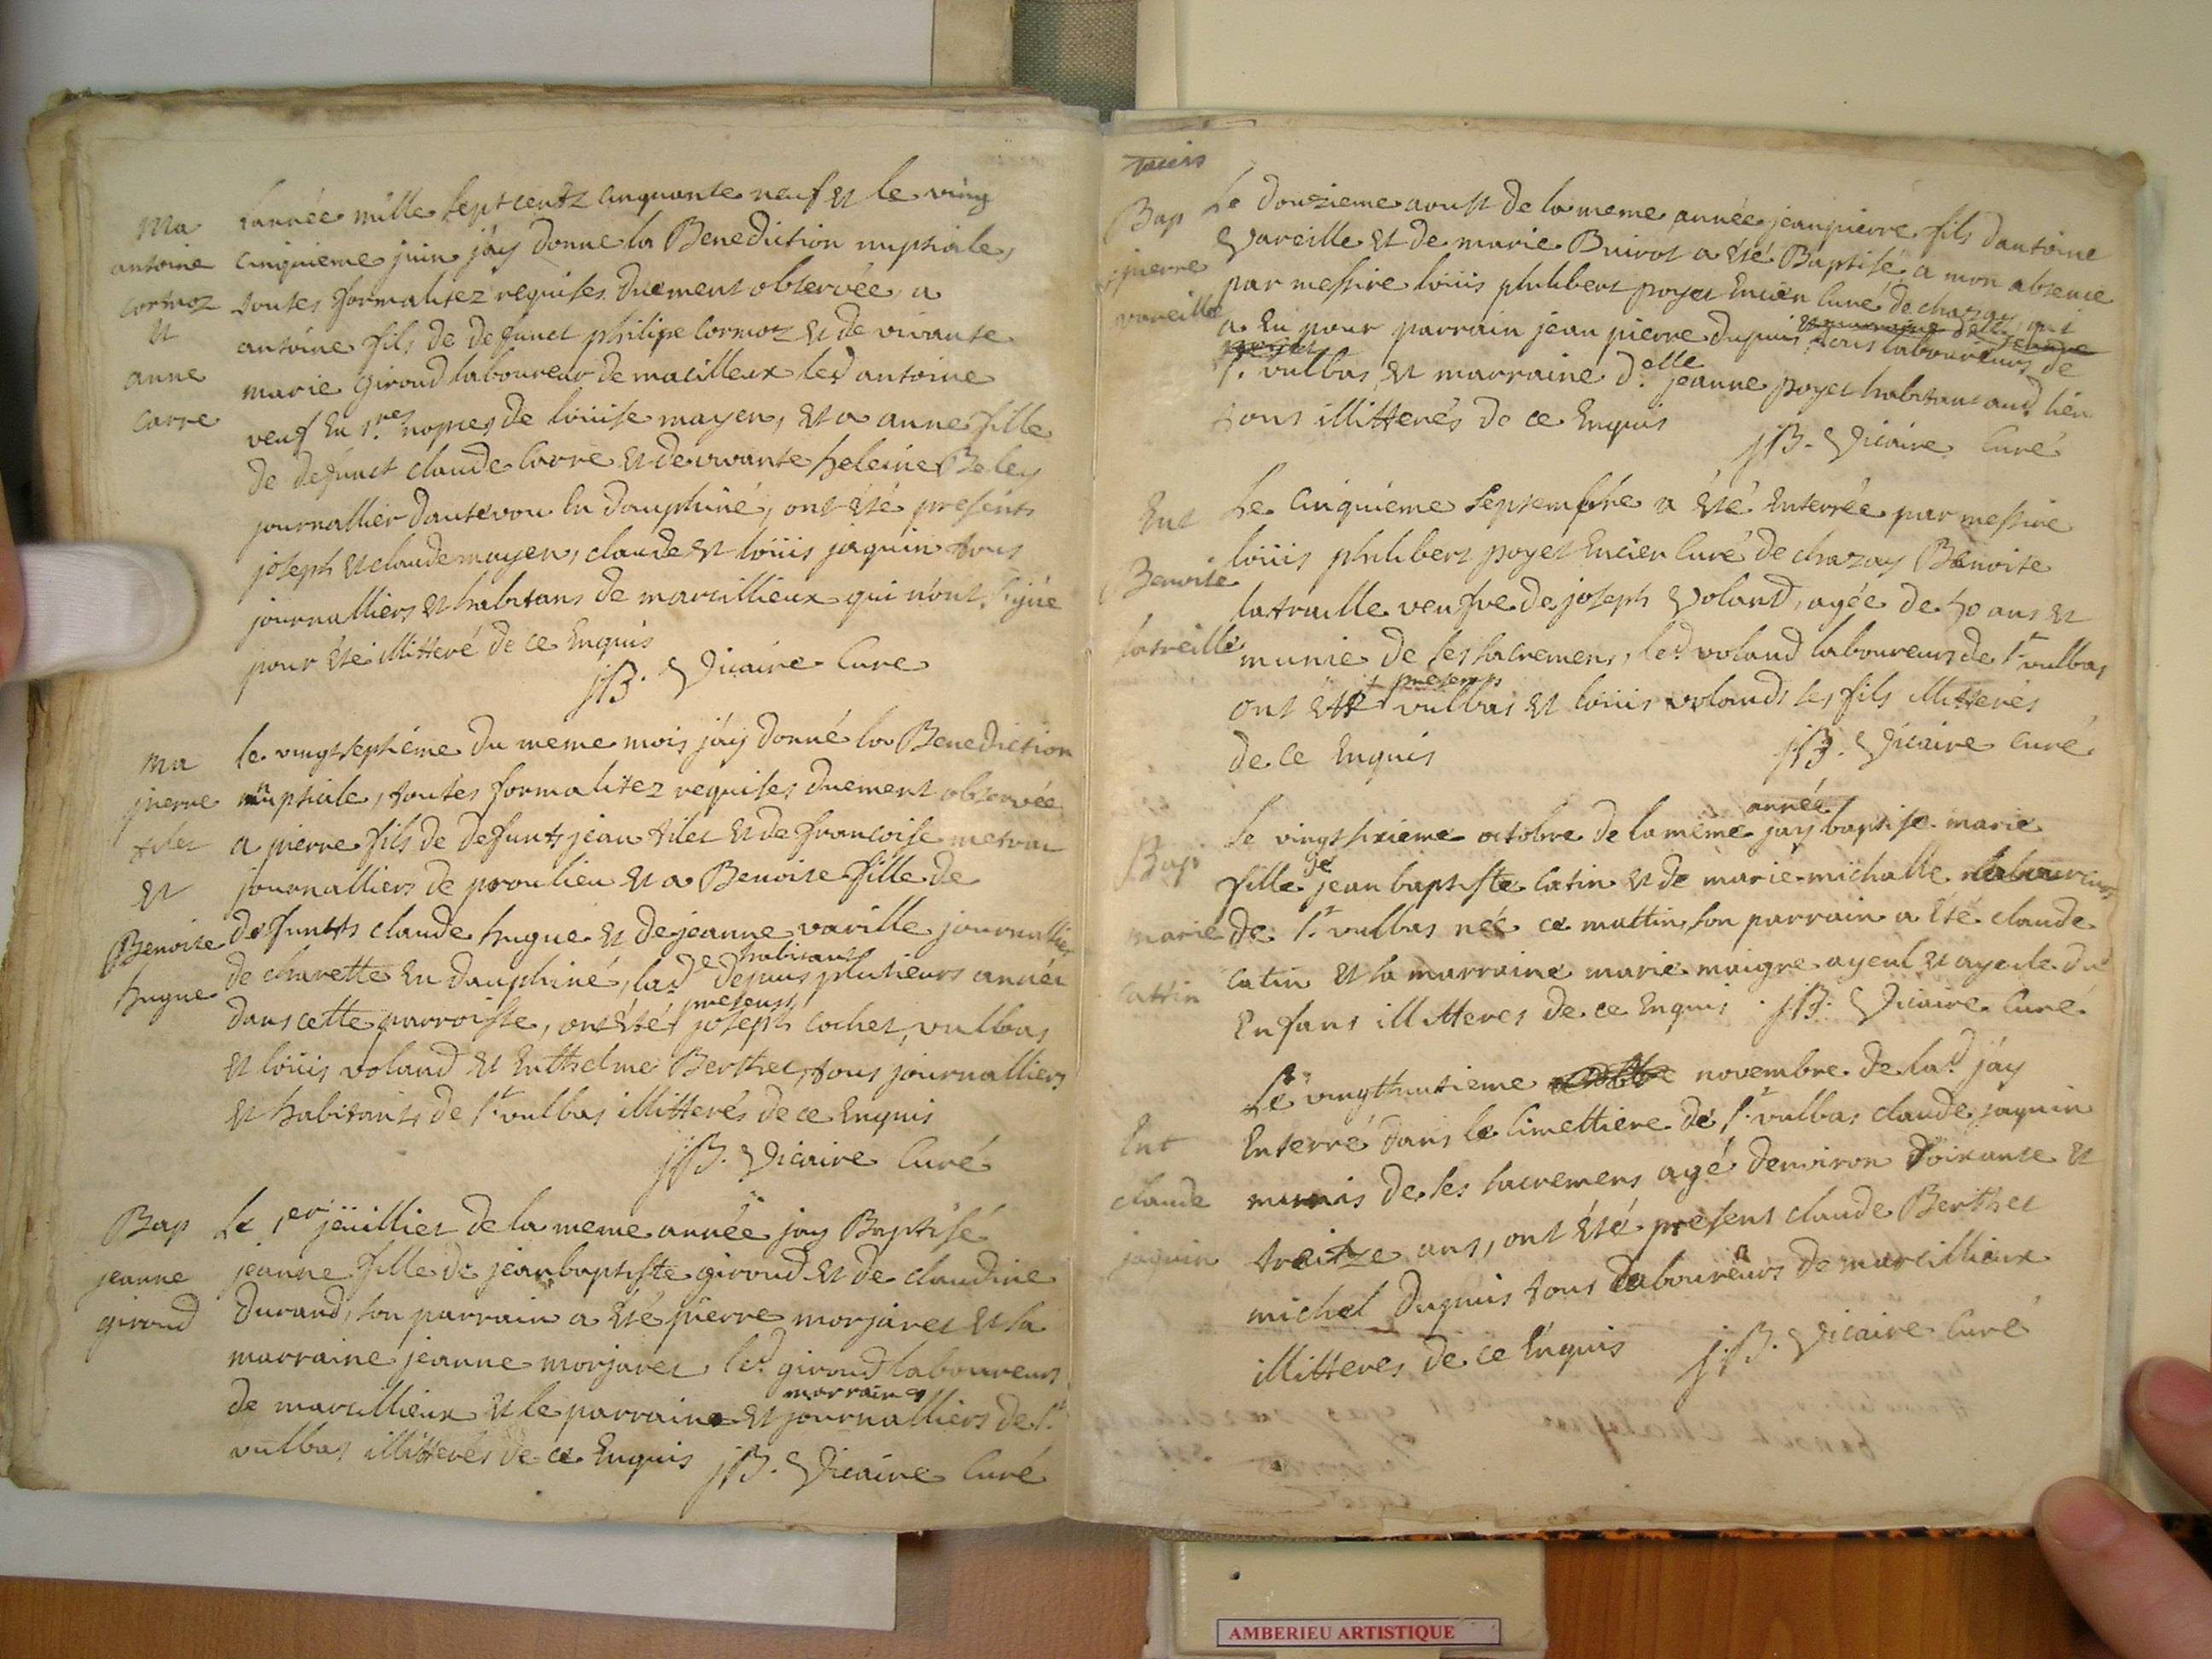 Ma
antoine
cormoz
et
anne
carre
L'année mille sept centz cinquante neuf et le ving
cinquieme juin j'ay donne la Benediction nuptiale,
toutes formalitez requises duement observée, a
antoine fils de defunct philipe Cormoz et de vivante
marie Giroud laboureur de marcillieux led antoine
veuf en 1.res nopces de loüise mayen, et a anne fille
de defunct claude Carre et de vivante heleine Beley
journallier d'antevou en dauphiné, ont été présents
joseph et claude mayen, claude et loüis jaquin tous
journalliers et habitans de marcillieux qui n'ont signé
pour été illitteré de ce Enquis
JB. Vicaire Curé
Ma
pierre
tilet
et
Benoite
hugue
le vingtseptiéme du meme mois j'ay donné la Benediction
nuptiale, toutes formalitez requises duement observée
a pierre fils de defunts jean tilet et de francoise
journalliers de proulieu et a Benoite fille de
defunts claude hugue et de jeanne varille journallier
de charette en dauphiné, lad.e habitant depuis plusieurs année
dans cette parroisse, ont été presents joseph cochet, vulbas
et loüis voland et Enthelme Berthet, tous journalliers
et habitants de st vulbas illitterés de ce Enquis
JB. Vicaire Curé
Bap
jeanne
giroud
Le 1er jeüilliet de la meme année j'ay Baptisé
jeanne fille de jean baptiste giroud et de claudine
Durand, son parrain a été pierre morjaret et la
marraine jeanne morjaret, led. giroud laboureur
de marcillieux et le parrain et marraine journalliers de st
vulbas illitterés de ce Enquis JB. Vicaire Curé
Bap
pierre
vareille
Le douzieme aoust de la meme année jeanpierre fils d'antoine
Vareille et de marie Buirot a été Baptisé a mon absence
par messire loüis philibert poyet Encien Curé de chazay, qui
a eu pour parrain jean pierre dupuis tous laboureurs de
st. vulbas et marraine d.elle jeanne poyet habitant aud. lieu
tous illitterés de ce Enquis
JB. Vicaire Curé
Ent
Benoite
latreille
Le Cinquiéme Septembre a été Enterrée par messire
loüis philibert poyet Encien Curé de chazay Benoite
latraille veufve de joseph Voland, agée de 70 ans et
munie de ses sacremens, led. voland laboureurs de st vulbas
ont été presents vulbas et loüis volands ses fils illitterés
de ce Enquis
JB. Vicaire Curé
Bap
marie
Cattin
Le vingt sixieme octobre de la même année jay baptisé marie
fille de jean baptiste Catin et de marie michalle laboureurs
de st vulbas née ce mattin, son parrain a été claude
Catin et la marraine marie maigre ayeul et ayeule du
Enfans illitteres de ce Enquis. JB. Vicaire Curé
Ent
claude
jaquin
Le vingthuitieme novembre de lad. j'ay
Enterré dans le Cimettiere de st. vulbas claude jaquin
munis de ses sacremens agé denviron soixante et
treitze ans, ont été present claude Berthet
michel Dupuis tous laboureurs de marcillieux
illitteres de ce Enquis JB. Vicaire Curé
AMBERIEU ARTISTIQUE